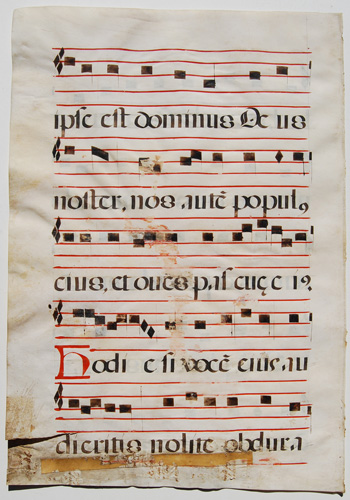 ipse est dominus De us
noster, nos autē popul,
eius, et oues pascuę e i9
Hodi e si vocē eius au
dieritis nolite obdura